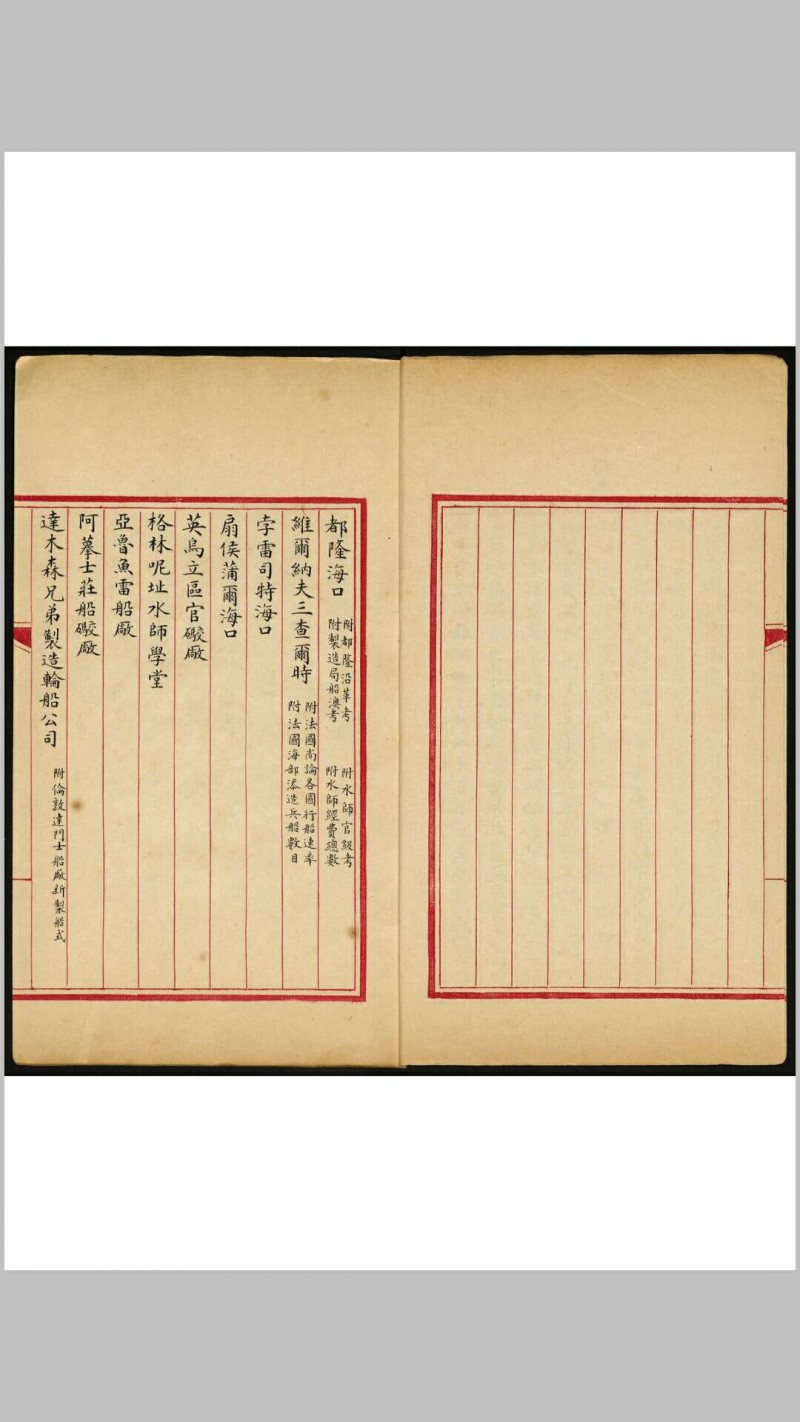 都隆海口 附都隆沿革考 附製造局船澳考 附水師官級考 附水師經費總數
維爾納夫三查爾時 附法國尚論各國行船速率 附法國海部添造兵船數目
孛雷司特海口
扇侯蒲爾海口
英烏立區官礮廠
格林呢址水師學堂
亞魯魚雷船廠
阿摹士莊船礮廠
達木森兄弟製造輪船公司 附倫敦達門士船廠新製船式